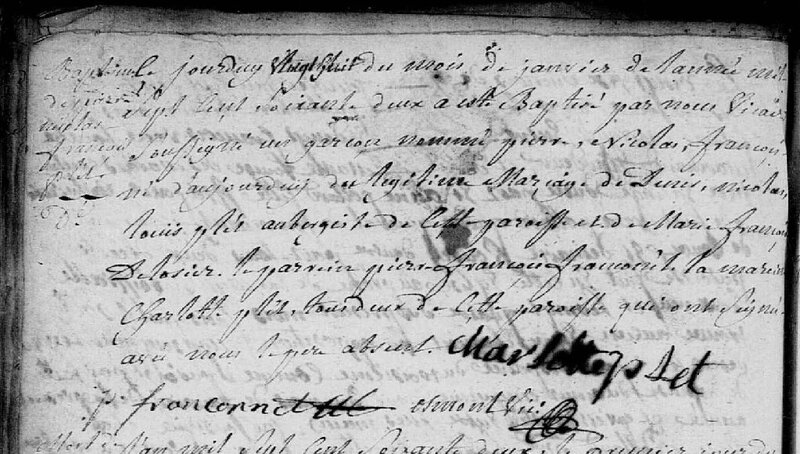 Baptême
de pierre
nicolas
françois
plet
Le jourduy Vingt huit du mois de janvier de lannée mil
sept cent soixante deux a esté Baptisé par nous Vicair
soussigné un garçon nommé pierre, Nicolas, françois
né d'aujourduy du legitime Mariage de Denis, nicolas,
louis plet aubergiste de cette paroisse et de Marie françoi
Delosier. le parrein pierre françois framont la marein
Charlotte plet, tous deux de cette paroisse qui ont signé
avec nous le pere absent. Charlotte plet
p. franconnet osmont Vic.
L'an mil sept cent soixante deux, le premier jour du